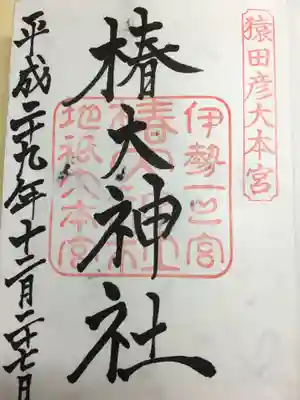 猿田彦大本宮
伊勢一之宮
椿大神社
地祇大本宮
平成二十九年十二月二十七日